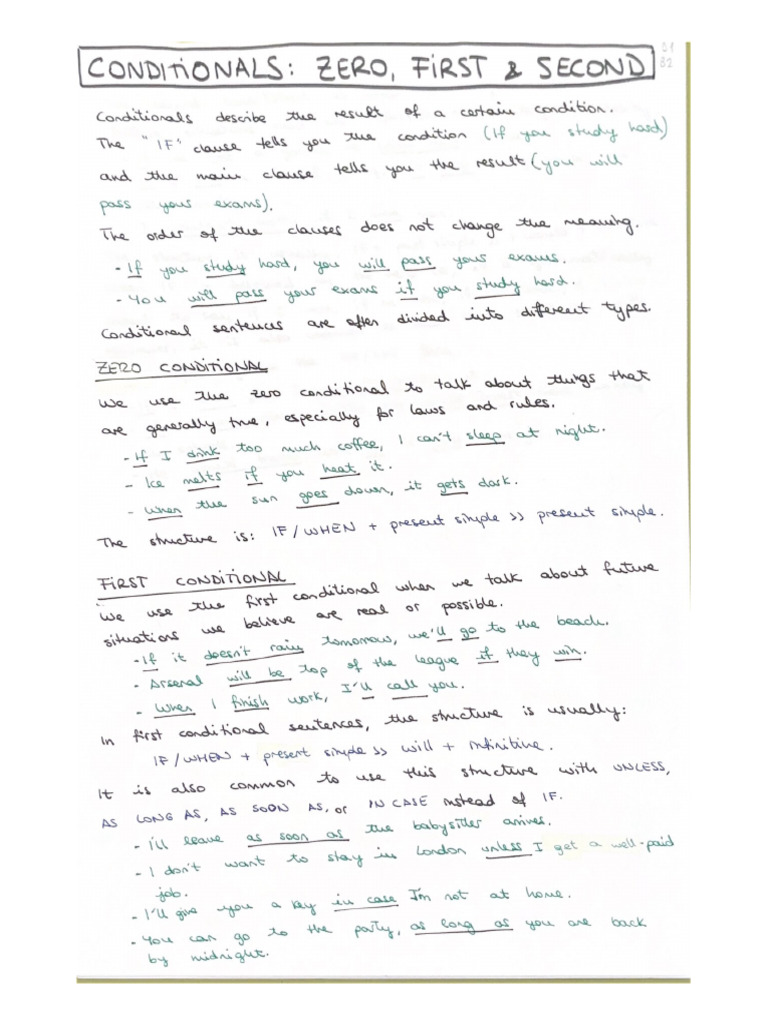 CONDITIONALS: ZERO, FIRST & SECOND
B1
B2
Conditionals describe the result of a certain condition.
The "IF" clause tells you the condition (If you study hard)
and the main clause tells you the result (you will
pass your exams).
The order of the clauses does not change the meaning.
- If you study hard, you will pass your exams.
- You will pass your exams if you study hard.
Conditional sentences are often divided into different types.
ZERO CONDITIONAL
We use the zero conditional to talk about things that
are generally true, especially for laws and rules.
- If I drink too much coffee, I can't sleep at night.
- Ice melts if you heat it.
- When the sun goes down, it gets dark.
The structure is: IF/WHEN + present simple >> present simple.
FIRST CONDITIONAL
We use the first conditional when we talk about future
situations we believe are real or possible.
- If it doesn't rain tomorrow, we'll go to the beach.
- Arsenal will be top of the league if they win.
- When I finish work, I'll call you.
In first conditional sentences, the structure is usually:
IF/WHEN + present simple >> will + infinitive.
It is also common to use this structure with UNLESS,
AS LONG AS, AS SOON AS, or IN CASE instead of IF.
- I'll leave as soon as the babysitter arrives.
- I don't want to stay in London unless I get a well-paid
job.
- I'll give you a key in case I'm not at home.
- You can go to the party, as long as you are back
by midnight.